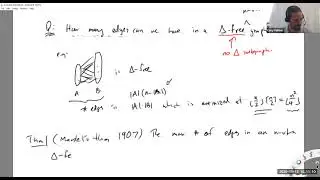 Q: How many edges can we have in a Δ-free graph
no Δ subgraph.
eg:
is Δ-free
A B
# edges is |A|·|B| which is maximized at ⌊n/2⌋⌈n/2⌉ = ⌊n²/4⌋
|A|(n-|A|)
Thm (Mantel's thm 1907) The max # of edges in an n-vertex
Δ-fe